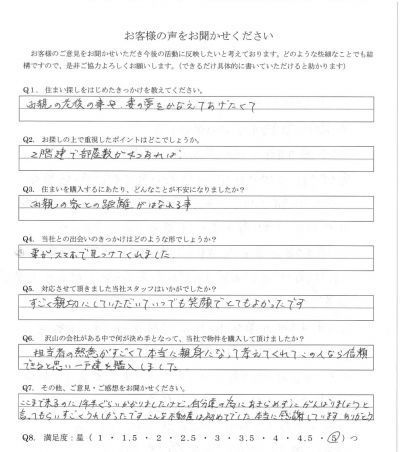 お客様の声をお聞かせください
お客様のご意見をお聞かせいただき今後の活動に反映したいと考えております。どのような些細なことでも結
構ですので、是非ご協力よろしくお願いします。（できるだけ具体的に書いていただけると助かります）
Q1. 住まい探しをはじめたきっかけを教えてください。
お親の老後の事や、妻の夢をかなえてあげたくて
Q2. お探しの上で重視したポイントはどこでしょうか。
2階建で部屋数が4つあれば
Q3. 住まいを購入するにあたり、どんなことが不安になりましたか？
お親の家との距離がはなれる事
Q4. 当社との出会いのきっかけはどのような形でしょうか？
妻が、スマホで見つけてくれました
Q5. 対応させて頂きました当社スタッフはいかがでしたか？
すごく親切にしていただいていつでも笑顔でとてもよかったです
Q6. 沢山の会社がある中で何が決め手となって、当社で物件を購入して頂けましたか？
担当者の熱意がすごくて本当に親身になって考えてくれてこの人なら信頼
できると思い一戸建を購入しました
Q7. その他、ご意見・ご感想をお聞かせください。
ここまで来るのに1年半ぐらいかかりましたけど、自分達の為にあきらめずにがんばりましょうと
言ってもらいすごくうれしかったです こんな不動産は初めてでした 本当に感謝しています ありがとう
Q8. 満足度：星（1 ・ 1.5 ・ 2 ・ 2.5 ・ 3 ・ 3.5 ・ 4 ・ 4.5 ・ 5）つ